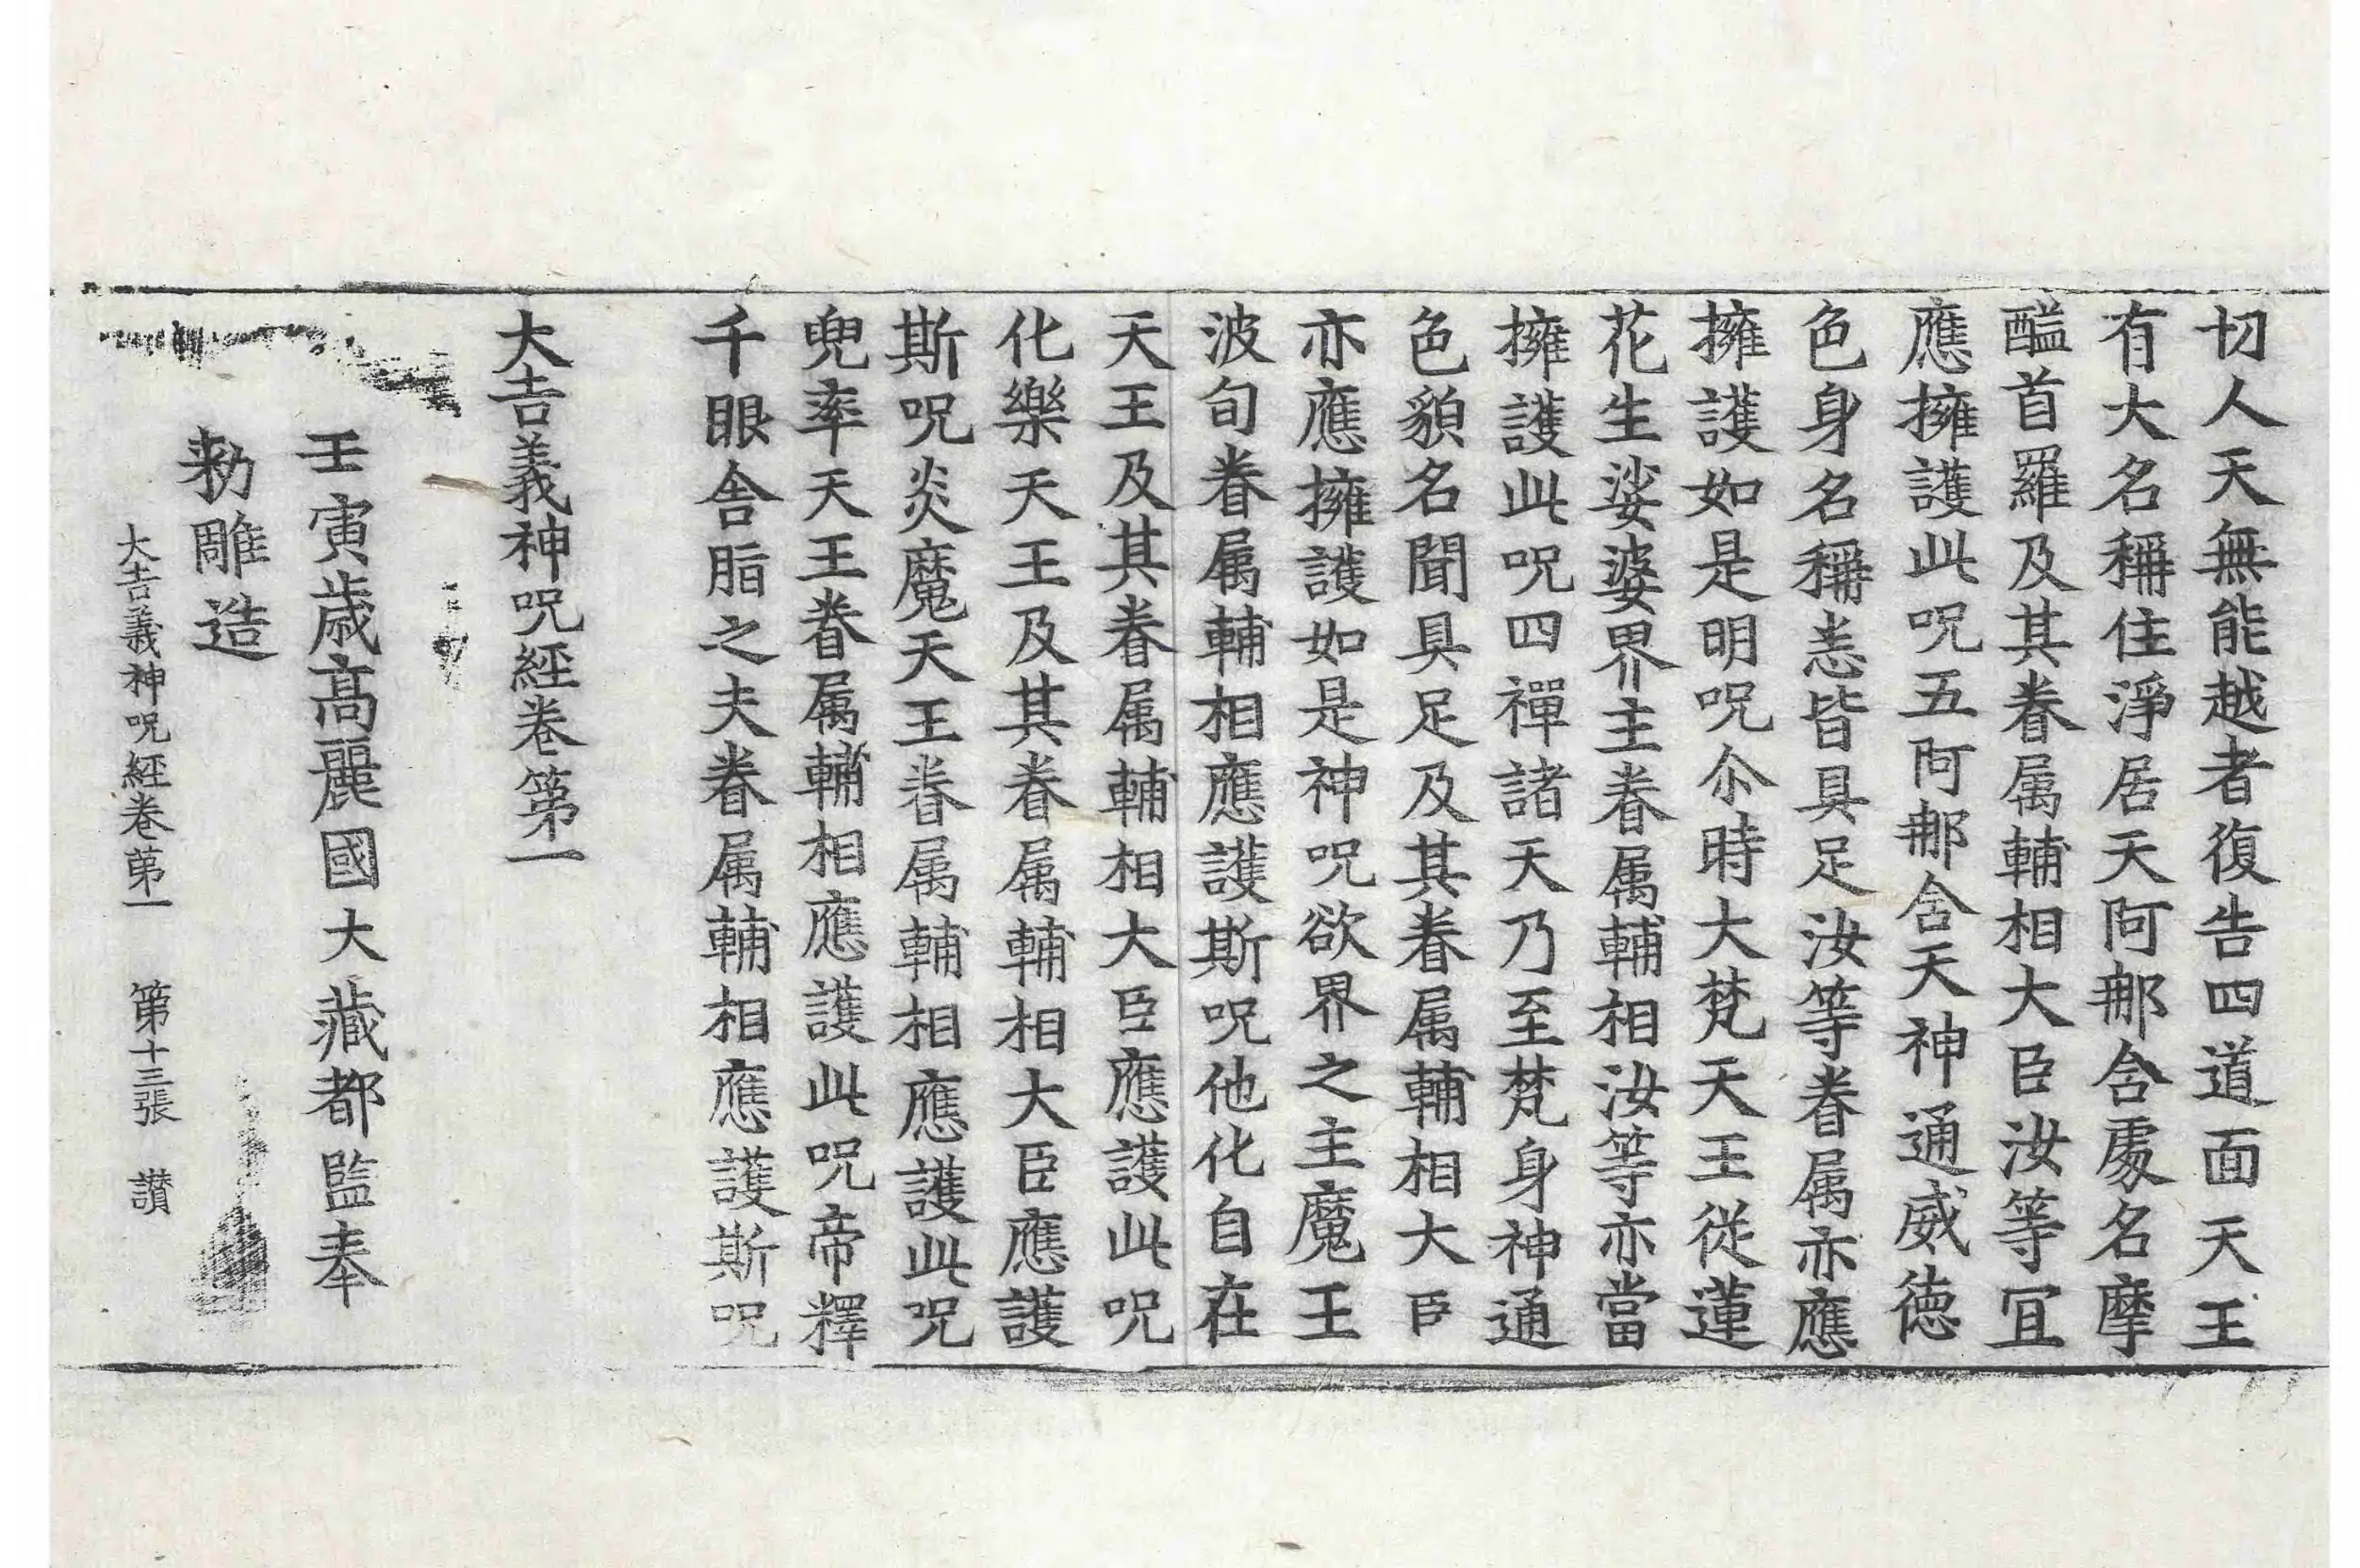 切人天無能越者復告四道面天王
有大名稱住淨居天阿那含處名摩
醯首羅及其眷属輔相大臣汝等冝
應擁護此呪五阿那含天神通威德
色身名稱悉皆具足汝等眷属亦應
擁護如是明呪尒時大梵天王從蓮
花生娑婆界主眷属輔相汝等亦當
擁護此呪四禪諸天乃至梵身神通
色貌名聞具足及其眷属輔相大臣
亦應擁護如是神呪欲界之主魔王
波旬眷属輔相應護斯呪他化自在
天王及其眷属輔相大臣應護此呪
化樂天王及其眷属輔相大臣應護
斯呪炎魔天王眷属輔相應護此呪
兜率天王眷属輔相應護此呪帝釋
千眼舍脂之夫眷属輔相應護斯呪
大吉義神呪經卷第一
壬寅歲高麗國大藏都監奉
勅雕造
大吉義神呪經卷第一 第十三張 讃